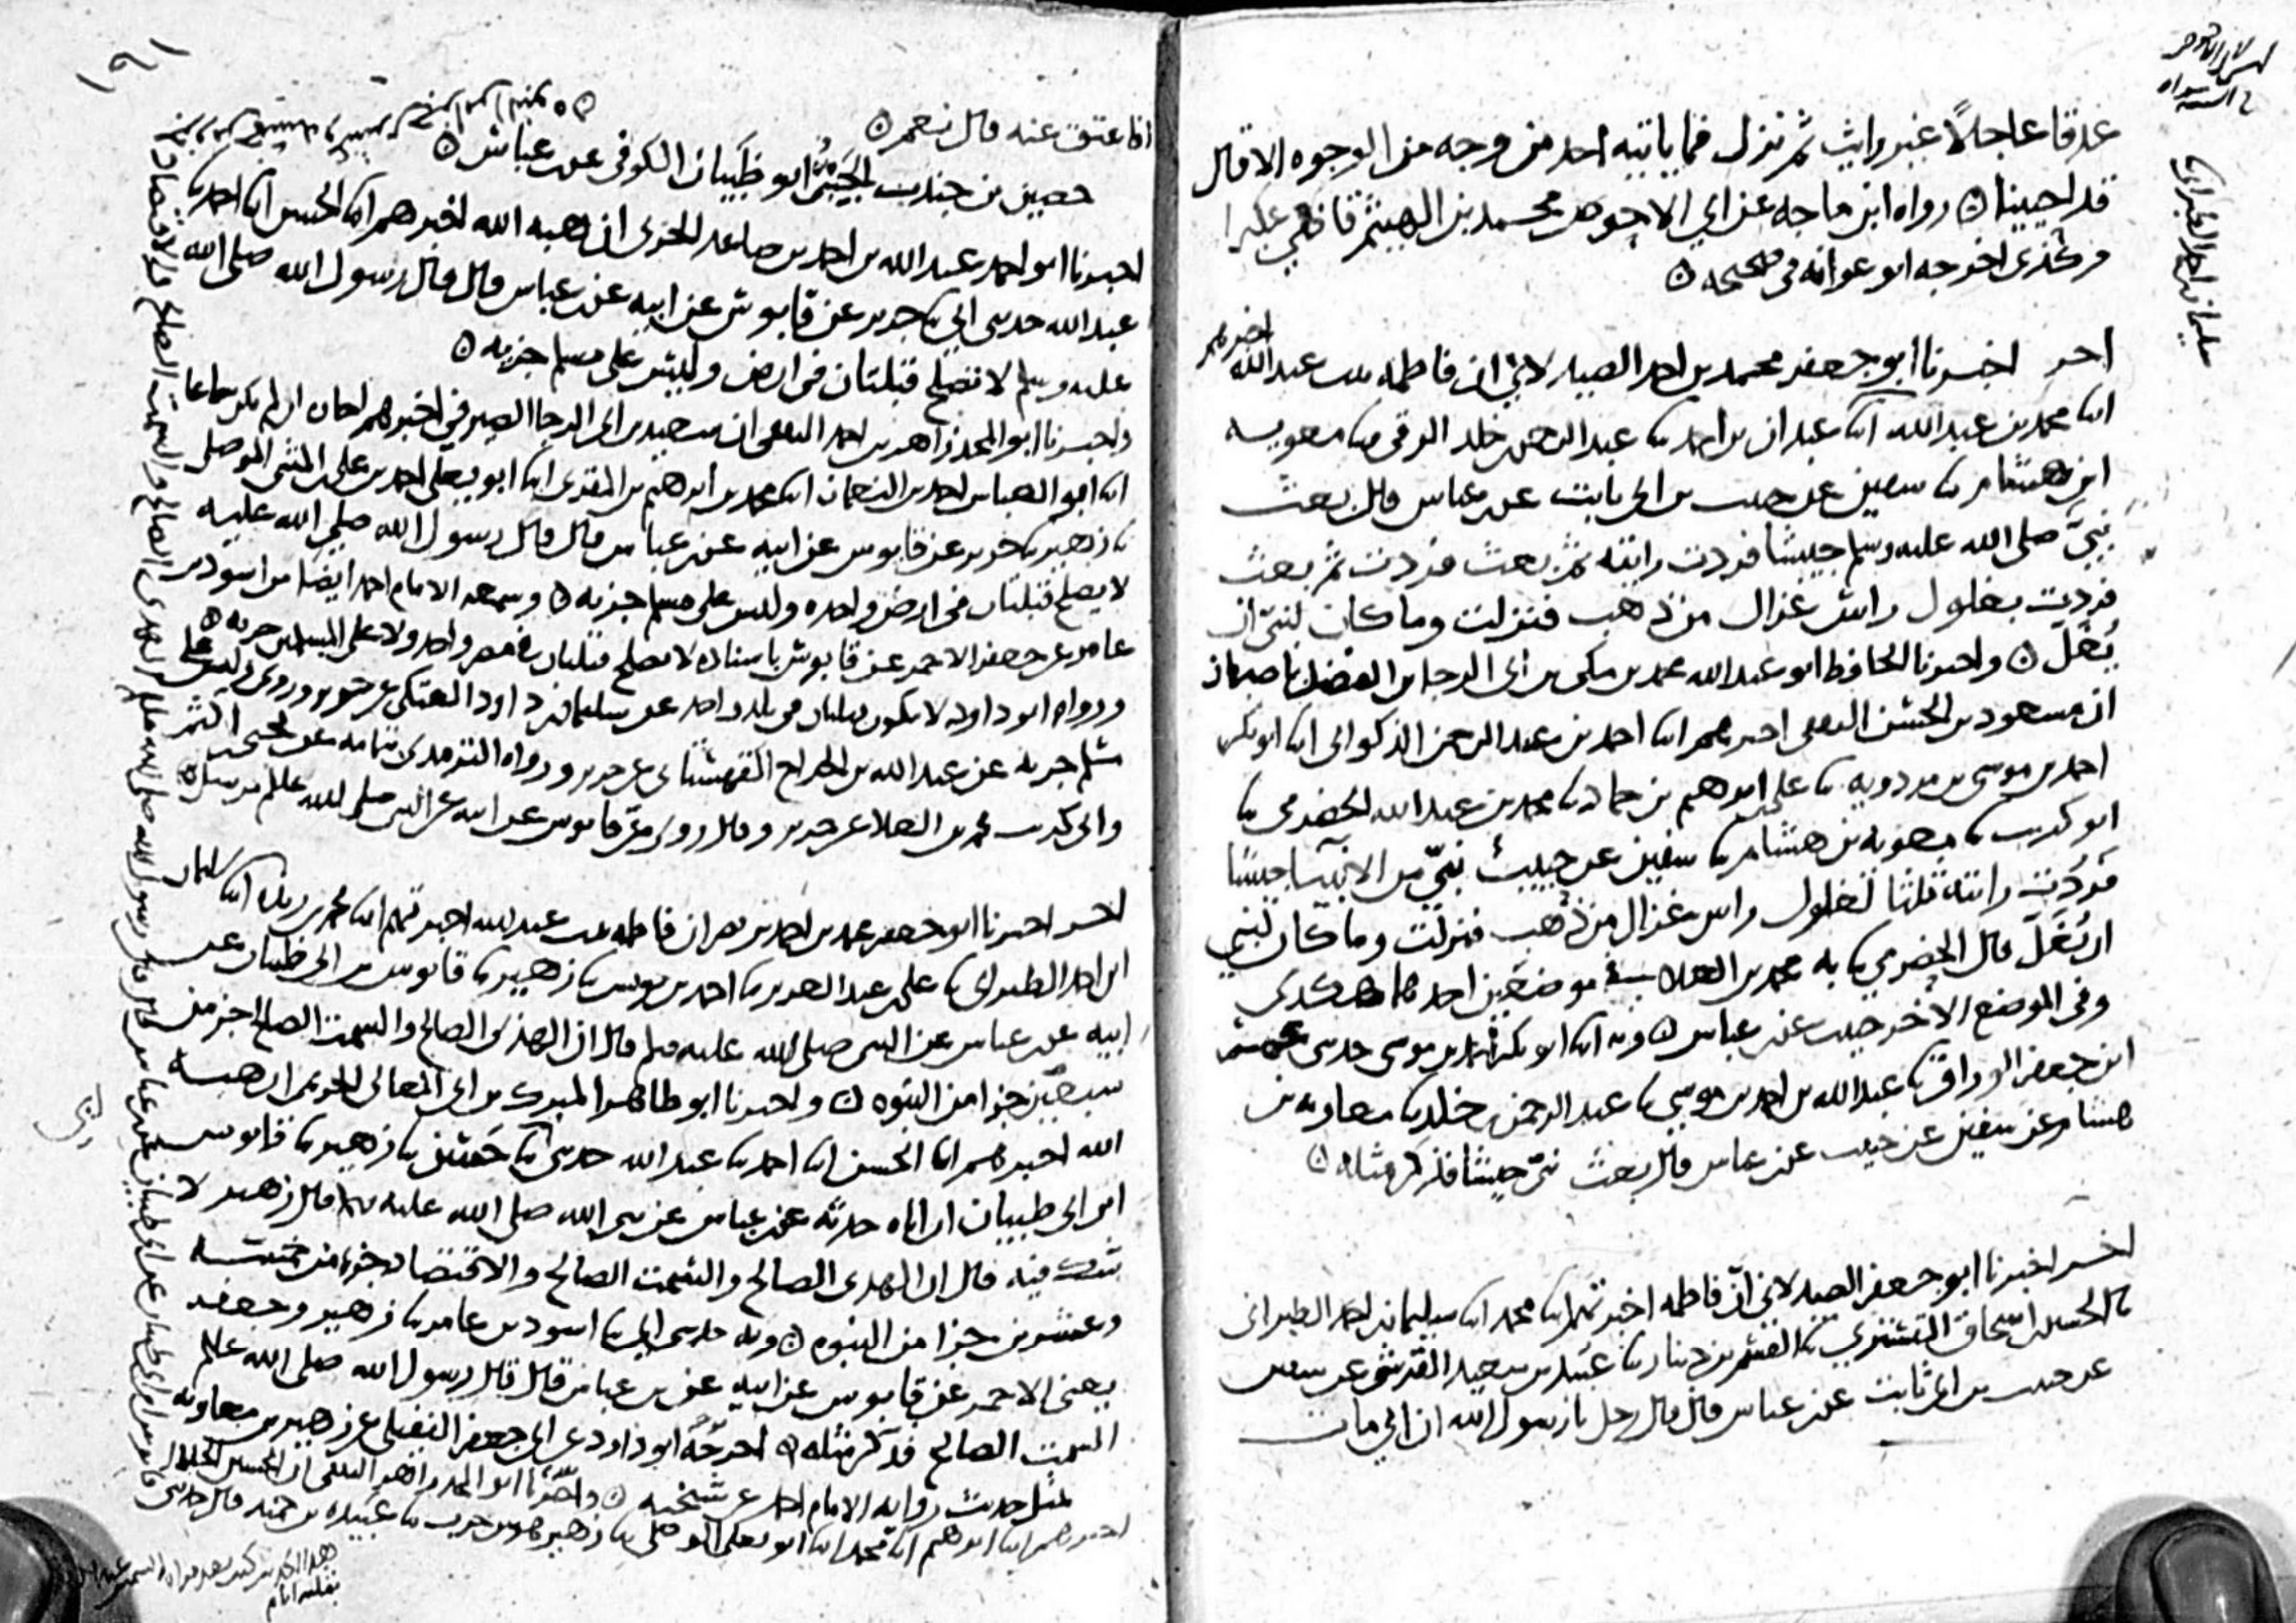 غدقا عاجلًا غير رايث ثم نزل فما ياتيه احد من وجه من الوجوه الا قال
قد احيينا ۞ رواه ابن ماجه عن ابي الاحوص محمد بن الهيثم قاضي عكبرا
اخرجه ابو عوانه في صحيحه ۞
اخبرنا ابو جعفر محمد بن احمد الصيدلاني ان فاطمه بنت عبد الله اخبرتهم
ابنا محمد بن عبد الله ابنا عبدان بن احمد ثنا عبد الرحمن خلد الرقي ثنا معويه
ابن هشام ثنا سفين عن حبيب بن ابي ثابت عن ابن عباس قال بعث
نبيّ صلى الله عليه وسلم جيشا فردت رايته ثم بعث فردت ثم بعث
فردت بغلول راس غزال من ذهب فنزلت وما كان لنبي ان
يُغلّ ۞ واخبرنا الحافظ ابو عبد الله محمد بن مكي بن ابي الرجا بن الفضل باصبهان
ان مسعود بن الحسن الثقفي اخبرهم ابنا احمد بن عبد الرحمن الذكواني ابنا ابو بكر
احمد بن موسى بن مردويه ثنا علي ابرهيم بن حماد ثنا محمد بن عبد الله الحضرمي ثنا
ابو كريب ثنا معويه بن هشام ثنا سفين عن حبيب نبيّ من الانبيا جيشا
فردّت رايته ثلثا لغلول راس غزال من ذهب فنزلت وما كان لنبي
ان يُغَلّ قال الحضرمي ثنا به محمد بن العلا في موضعين احدهما هكدى
وفي الموضع الاخر حبيب عن ابن عباس ۞ وبه ابنا ابو بكر احمد بن موسى حدثني
ابن جعفر الوراق ثنا عبد الله بن احمد بن موسى ثنا عبد الرحمن بن خلد ثنا معاويه بن
هشام عن سفين عن حبيب عن ابن عباس قال بعث نبيّ جيشا فذكر مثله ۞
اخبرنا ابو جعفر الصيدلاني انّ فاطمه اخبرتهم ابنا محمد ابنا سليمان بن احمد الطبراني
ثنا الحسين بن اسحاق التستري ثنا القسم بن دينار ثنا عبيد بن سعيد القرشي عن سفين
عن حبيب بن ابي ثابت عن ابن عباس قال قال رجل يا رسول الله ان ابي مات
١٩١
افاعتق عنه قال نعم ۞
حصين بن جندب الجَنْبيّ ابو ظَبْيان الكوفي عن ابن عباس ۞
اخبرنا ابو احمد عبد الله بن احمد بن صاعد الحربي ان هبه الله اخبرهم ابنا الحسن ابنا احمد ثنا
عبد الله حدثني ابي ثنا جرير عن قابوس عن ابيه عن ابن عباس قال قال رسول الله صلى الله
عليه وسلم لا تصلح قبلتان في ارض وليس على مسلم جزيه ۞
واخبرنا ابو المجد زاهر بن احمد الثقفي ان سعيد بن ابي الرجا الصيرفي اخبرهم اجازه ان لم يكن سماعا
ابنا ابو العباس احمد بن النعمان ابنا محمد بن ابرهيم بن المقري ابنا ابو يعلى احمد بن علي بن المثنى الموصلي
ثنا زهير ثنا جرير عن قابوس عن ابيه عن ابن عباس قال قال رسول الله صلى الله عليه
لا يصلح قبلتان في ارض واحده وليس على مسلم جزيه ۞ وسمعه الامام احمد ايضا من اسود بن
عامر عن جعفر الاحمر عن قابوس باسناده لا تصلح قبلتان في مصر واحد ولا على المسلمين جزيه ۞
ورواه ابو داود لا يكون قبلتان في بلد واحد عن سليمان بن داود العتكي عن جرير وروى وليس على
مسلم جزيه عن عبد الله بن الجراح القهستاني عن جرير ورواه الترمدي بتمامه عن يحيى بن اكثم
وابي كريب محمد بن العلا عن جرير وقال روى عن قابوس عن ابيه عن النبي صلى الله عليه وسلم مرسل
اخبرنا ابو جعفر محمد بن احمد بن نصر ان فاطمه بنت عبد الله اخبرتهم ابنا محمد بن ريذه ابنا سليمان
ابن احمد الطبراني ثنا علي بن عبد العزيز ثنا احمد بن يونس ثنا زهير ثنا قابوس بن ابي ظبيان عن
ابيه عن ابن عباس عن النبي صلى الله عليه وسلم قال ان الهدي الصالح والسمت الصالح جز من
سبعين جزا من النبوه ۞ واخبرنا ابو طاهر المبرك بن ابي المعالي الحريمي ان هبه
الله اخبرهم ابنا الحسن ابنا احمد ثنا عبد الله حدثني ابي ثنا حسن ثنا زهير ثنا قابوس
ابن ابي ظبيان ان اباه حدثه عن ابن عباس عن نبي الله صلى الله عليه وسلم قال زهير لا
شك فيه قال ان الهدى الصالح والسمت الصالح والاقتصاد جزء من خمسه
وعشرين جزا من النبوه ۞ وبه حدثني ابي ثنا اسود بن عامر ثنا زهير وجعفر
يعني الاحمر عن قابوس عن ابيه عن ابن عباس قال قال رسول الله صلى الله عليه وسلم
السمت الصالح فذكر مثله ۞ اخرجه ابو داود عن ابي جعفر النفيلي عن زهير بن معاويه
مثل حديث روايه الامام احمد عن شيخيه ۞ واخبرنا ابو المجد زاهر الثقفي ان الحسين الخلال
اخبرهم ابنا ابرهيم ابنا محمد ابنا ابو يعلى الموصلي ثنا زهير هو بن حرب ثنا عبيده بن حميد قال حدثني
قابوس بن ابي ظبيان عن ابن عباس قال قال رسول الله صلى الله عليه وسلم ان الهدى الصالح والسمت الصالح والاقتصاد